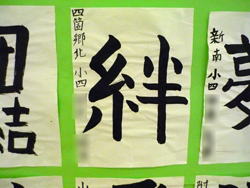 団結
四箇郷北小四
絆
新南小四
夢